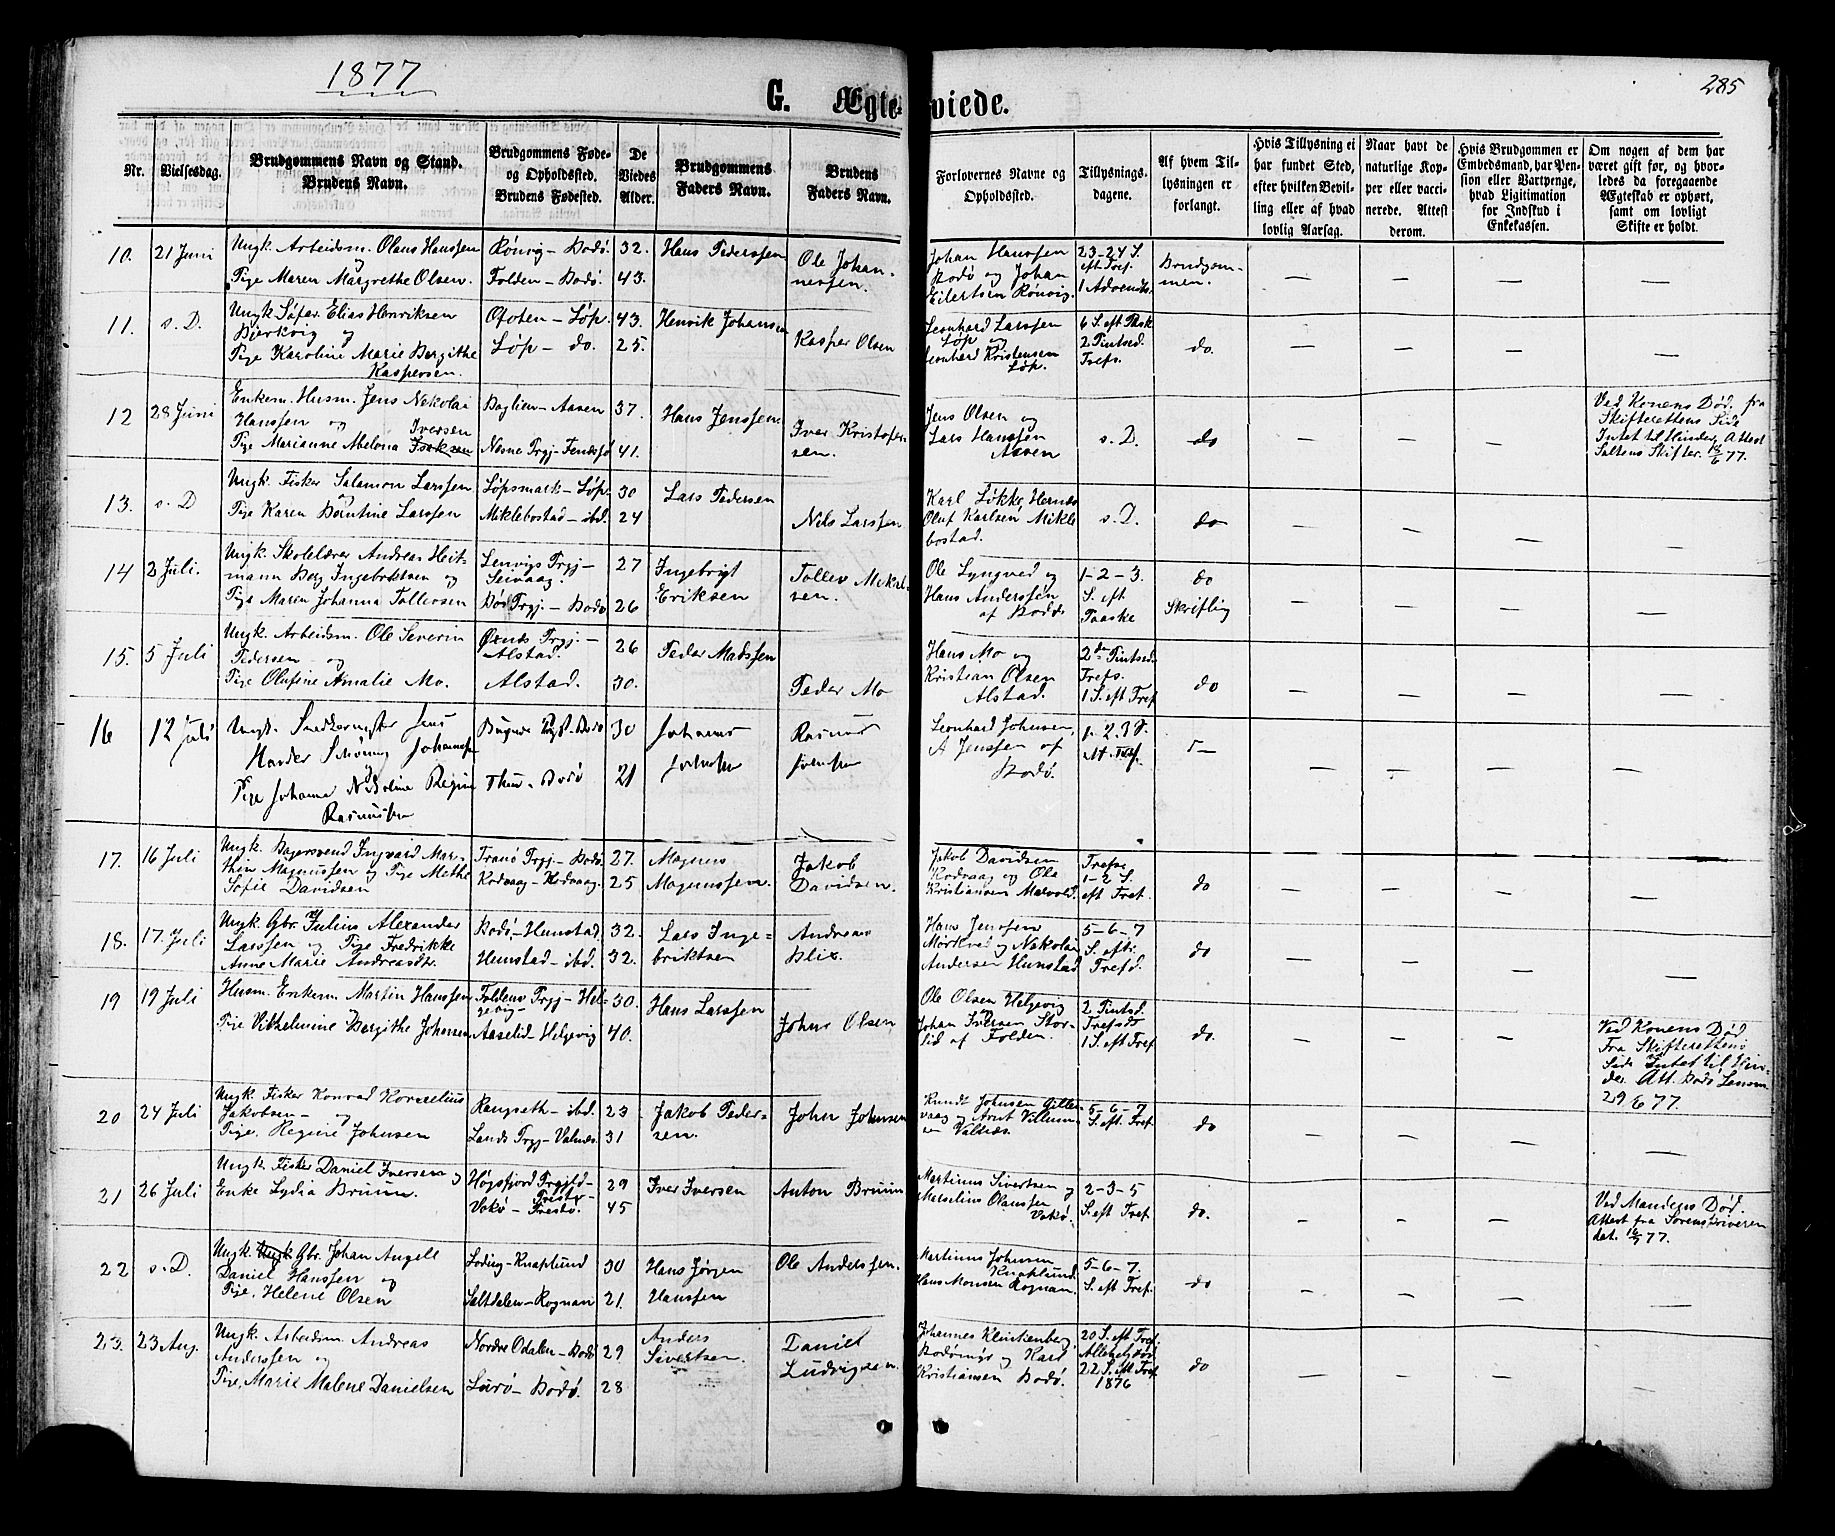 1877
285
G. Ægte-viede.
Nr.
Vielsesdag.
Brudgommens Navn og Stand.
Brudens Navn.
Brudgommens Føde-
og Opholdssted.
Brudens Fødested.
De
Viedes
Alder.
Brudgommens
Faders Navn.
Brudens
Faders Navn.
Forlovernes Navne og
Opholdssted.
Tillysnings-
dagene.
Af hvem Til-
lysningen er
forlangt.
Hvis Tillysning ei
har fundet Sted,
efter hvilken Bevil-
ling eller af hvad
lovlig Aarsag.
Naar havt de
naturlige Kop-
per eller vacci-
nerede. Attest
derom.
Hvis Brudgommen er
Embedsmand, har Pen-
sion eller Vartpenge,
hvad Ligitimation
for Indskud i
Enkekassen.
Om nogen af dem har
været gift før, og hvor-
ledes da foregaaende
Ægteskab er ophørt,
samt om lovligt
Skifte er holdt.
10. 21 Juni
Ungk. Arbeidsm. Olaus Hanssen
og
Pige Maren Margrethe Olsen.
Rønvig - Bodø. 32.
Folden - Bodø. 43.
Hans Pederssen
Ole Johan-
nessen.
Johan Hanssen
Bodø og Johan
Eilertsen Rønvig.
23-24 S.
eft Tref.
1 Advents.
Brudgom-
men.
11. s. D.
Ungk. Søfar. Elias Henriksen
Bjerkvig og
Pige Karoline Marie Bergithe
Kaspersen.
Ofoten - Løp. 43.
Løp - do. 25.
Henrik Johansen
Kasper Olsen
Leonhard Larssen
Løp og
Leonhard Kristensen
Løp.
6 S. eft Paask
2 Pintsed.
Trefs.
do.
12 28 Juni
Enkem. Husm. Jens Nekolai
Hanssen og Iversen
Pige Marianne Abelona Isaksen
Baglien - Aasen 37.
Nesne Prgj - 41.
Hans Jenssen
Iver Kristofer-
sen.
Jens Olsen og
Lars Hanssen
Aasen
s. D.
do
Ved Konens Død, fra
Skifterettens Side
Intet til Hinder, Attest
Saltens Skifter. 16/6 77.
13. s. D
Ungk. Fisker Salamon Larssen
og
Pige Karen Berntine Larssen
Løpsmark - Løp. 30
Miklebostad - ibd. 24
Lars Pedersen
Nils Larssen
Karl Løkke, Hernes
Oluf Karlsen, Mikle
bostad.
s. D.
do
14 2 Juli.
Ungk. Skolelærer Andreas Heit-
mann Berg Ingebriktsen og
Pige Maren Johanna Tollevsen
Lenvigs Prgj - 27
Seivaag.
Bø Prgj. - Bodø 26
Ingebrigt
Eriksen
Tollev Mikal-
sen.
Ole Lyngved og
Hans Anderssen
af Bodø
1-2-3.
S. eft
Paaske
do
Skriftlig
15. 5 Juli
Ungk. Arbeidsm. Ole Severin
Pedersen og
Pige Olufine Amalie Mo.
Øxnes Prgj. - 26
Alstad.
Alstad. 30.
Peder Madssen
Peder Mo
Hans Mo og
Kristian Olsen
Alstad.
2den Pintsed.
Trefs.
1 S. eft Tref
do
16 12 Juli
Ungk. Snedkermester Jens
Hander Schøning Johannesen
Pige Johanna Nikoline Regine
Rasmussen
Bugunes Prgj. - Bodø 30
Bodø 21
Johannes
Rasmus
Leonhard Johnsen,
A Jenssen af
Bodø.
1. 2. 3 S.
eft. Tref.
17. 16 Juli
Ungk. Bagersvend Ingvard Mar-
thin Magnussen og Pige Methe
Sofie Davidsen
Tranø Prgj - Bodø. 27.
Kodvaag - Kodvaag. 25
Magnus
Magnussen.
Jakob
Davidsen.
Jakob Davidsen
Kodvaag og Ole
Kristiansen
Trefs.
1-2 S.
eft Tref.
do
18. 17. Juli
Ungk. Gbr. Julius Alexander
Larssen og Pige Fredrikke
Anne Marie Andreasdtr.
Bodø. - Hunstad. 32.
Hunstad - ibd. 32.
Lars Inge-
briktsen
Andreas
Klix.
Hans Jenssen
Mørkved og Nekolai
Andersen Hunstad.
5-6-7
S. eftr.
Trefd.
do
19 19 Juli
Husm. Enkem. Martin Hanssen
Pige Vilhelmine Bergithe Johnsen
Foldens Prgj - Hel- 30.
gevig -
Aaselid - Helgevig 40.
Hans Larssen
Johns Olsen
Ole Olsen Helgevig
Johan Iversen Stor-
lid af Folden.
2 Pintsd.
Trefsd
1 S. eft Tref.
do.
Ved Konens Død.
Fra Skifterettens
Side Intet til Hin-
der. Att. Bodø Lensm
29/6 77.
20 24 Juli
Ungk. Fisker Konrad Kornelius
Jakobsen - og
Pige. Regine Johnsen
Rangseth - ibd. 23
Lands Prgj - Valnes. 31
Jakob Peder-
sen.
John Johnsen
Knudt Johnsen Gille-
vaag og Arnt Villum-
sen Valnes.
5-6-7
S. eft. Tref.
do
21 26 Juli
Ungk. Fisker Daniel Iversen og
Enke Lydia Bruun.
Høgsfjord Prgjld - 29
Præstø -
Vokø - Præstø. 45
Iver Iversen
Anton Bruun
Martinus Sivertsen og
Marselius Olaussen
Vokø.
2-3-5
S. eft Tref.
do.
Ved Mandens Død.
Attest fra Sorenskriveren
dat. 16/7 77.
22 s. D.
Ungk. Ungk Gbr. Johan Angell
Daniel Hanssen og
Pige, Helene Olsen
Løding - Knaplund 30
Saltdalen - Rognan 21.
Hans Jørgen
Hanssen
Ole Anderssen.
Martinus Johnsen
Knaplund.
Hans Monsen Rognan.
5-6-7.
S. eft Tref.
do
23. 23 Aug.
Ungk. Arbeidsm. Andreas
Anderssen og
Pige, Marie Malene Danielsen
Nordre Odalen - Bodø 29
Lurø - Bodø. 28
Anders
Sivertsen.
Daniel
Ludvigsen.
Johannes Klintenberg
Bodømyr og Karl
Kristiansen Bodø.
20 S. eft Tref.
22 S. eft Tref
1876
do